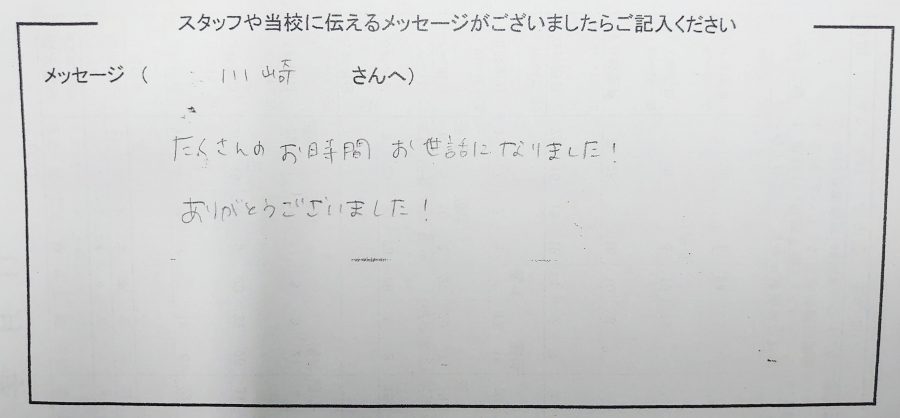 スタッフや当校に伝えるメッセージがございましたらご記入ください
メッセージ（ 川崎 さんへ）
たくさんのお時間 お世話になりました！
ありがとうございました！